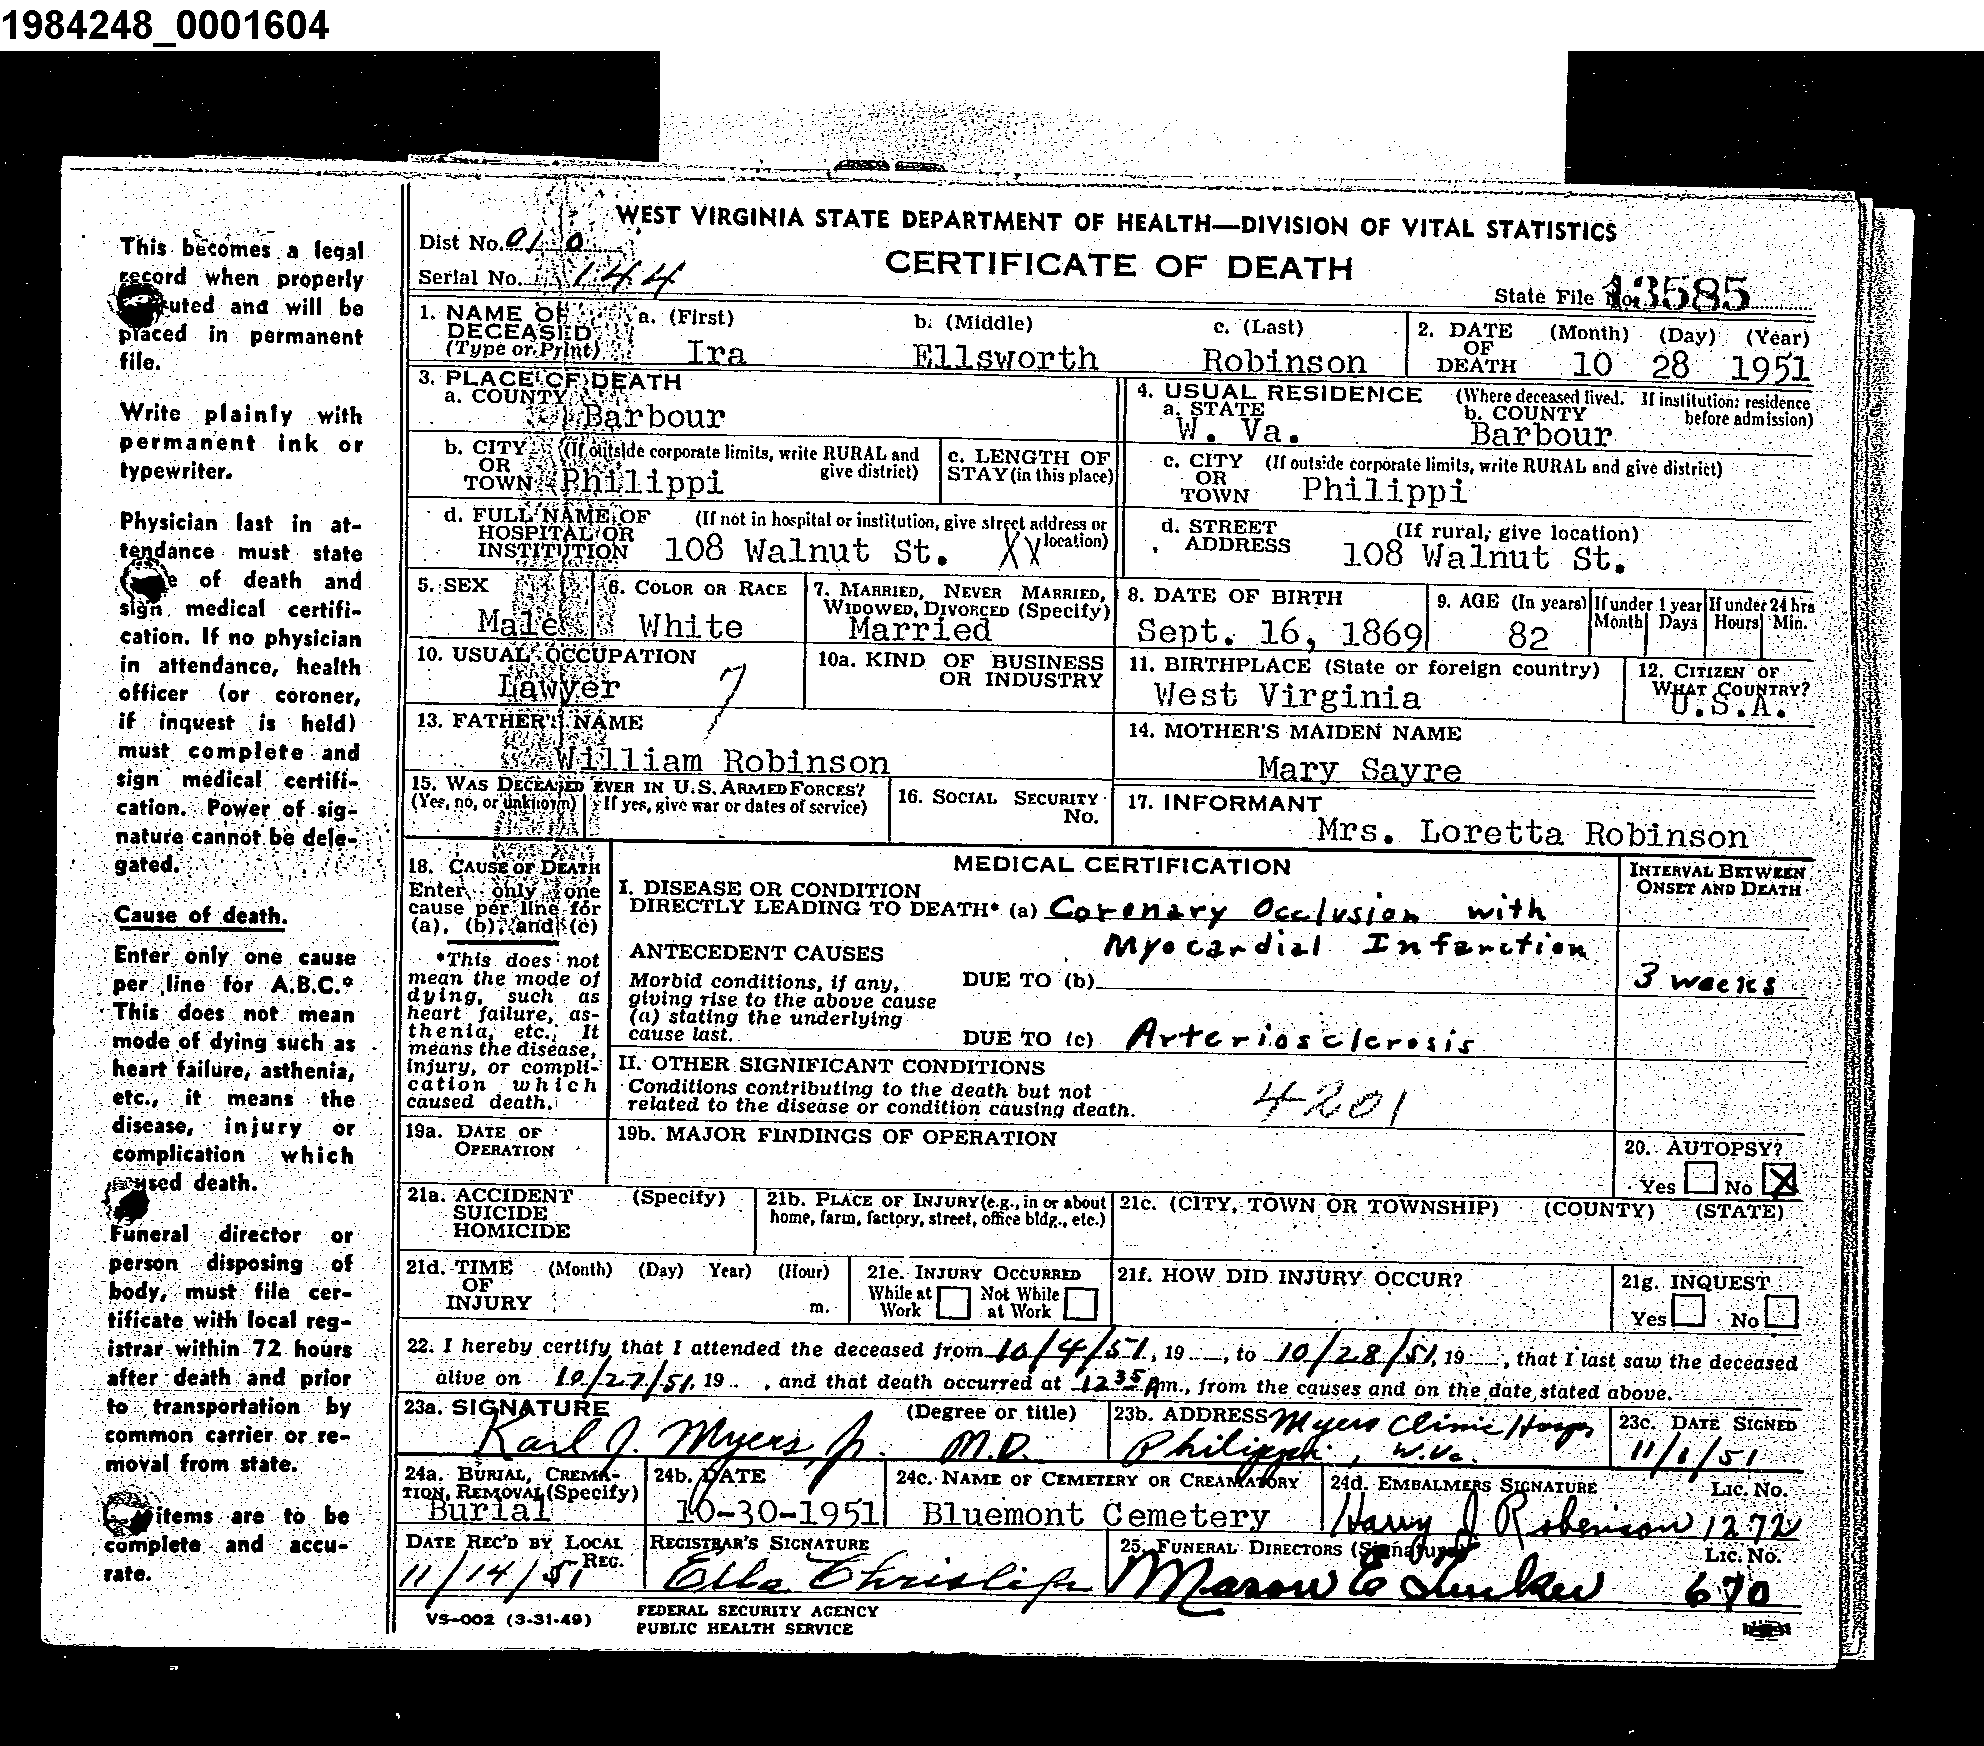 1984248_0001604
This becomes a legal
record when properly
uted and will be
placed in permanent
file.
Write plainly with
permanent ink or
typewriter.
Physician last in at-
tendance must state
e of death and
sign medical certifi-
cation. If no physician
in attendance, health
officer (or coroner,
if inquest is held)
must complete and
sign medical certifi-
cation. Power of sig-
nature cannot be dele-
gated.
Cause of death.
Enter only one cause
per line for A.B.C.*
This does not mean
mode of dying such as
heart failure, asthenia,
etc., it means the
disease, injury or
complication which
used death.
Funeral director or
person disposing of
body, must file cer-
tificate with local reg-
istrar within 72 hours
after death and prior
to transportation by
common carrier or re-
moval from state.
items are to be
complete and accu-
rate.
WEST VIRGINIA STATE DEPARTMENT OF HEALTH—DIVISION OF VITAL STATISTICS
Dist No. 010
CERTIFICATE OF DEATH
Serial No. 144
State File No. 13585
1. NAME OF DECEASED (Type or Print) a. (First) b. (Middle) c. (Last)
Ira Ellsworth Robinson
2. DATE OF DEATH (Month) (Day) (Year)
10 28 1951
3. PLACE OF DEATH
a. COUNTY
Barbour
4. USUAL RESIDENCE (Where deceased lived. If institution: residence before admission)
a. STATE b. COUNTY
W. Va. Barbour
b. CITY OR TOWN (If outside corporate limits, write RURAL and give district)
Philippi
c. LENGTH OF STAY (in this place)
c. CITY OR TOWN (If outside corporate limits, write RURAL and give district)
Philippi
d. FULL NAME OF HOSPITAL OR INSTITUTION (If not in hospital or institution, give street address or location)
108 Walnut St. XX
d. STREET ADDRESS (If rural, give location)
108 Walnut St.
5. SEX
Male
6. COLOR OR RACE
White
7. MARRIED, NEVER MARRIED, WIDOWED, DIVORCED (Specify)
Married
8. DATE OF BIRTH
Sept. 16, 1869
9. AGE (In years)
82
If under 1 year
Month Days
If under 24 hrs
Hours Min.
10. USUAL OCCUPATION
Lawyer 7
10a. KIND OF BUSINESS OR INDUSTRY
11. BIRTHPLACE (State or foreign country)
West Virginia
12. CITIZEN OF WHAT COUNTRY?
U.S.A.
13. FATHER'S NAME
William Robinson
14. MOTHER'S MAIDEN NAME
Mary Sayre
15. WAS DECEASED EVER IN U.S. ARMED FORCES?
(Yes, no, or unknown) If yes, give war or dates of service)
16. SOCIAL SECURITY No.
17. INFORMANT
Mrs. Loretta Robinson
18. CAUSE OF DEATH
Enter only one
cause per line for
(a), (b), and (c)
*This does not
mean the mode of
dying, such as
heart failure, as-
thenia, etc. It
means the disease,
injury, or compli-
cation which
caused death.
MEDICAL CERTIFICATION
INTERVAL BETWEEN ONSET AND DEATH
I. DISEASE OR CONDITION
DIRECTLY LEADING TO DEATH* (a) Coronary Occlusion with
Myocardial Infarction
ANTECEDENT CAUSES
Morbid conditions, if any,
giving rise to the above cause
(a) stating the underlying
cause last.
DUE TO (b)
3 weeks
DUE TO (c) Arteriosclerosis
II. OTHER SIGNIFICANT CONDITIONS
Conditions contributing to the death but not
related to the disease or condition causing death.
4201
19a. DATE OF OPERATION
19b. MAJOR FINDINGS OF OPERATION
20. AUTOPSY?
Yes No X
21a. ACCIDENT SUICIDE HOMICIDE (Specify)
21b. PLACE OF INJURY (e.g., in or about
home, farm, factory, street, office bldg., etc.)
21c. (CITY, TOWN OR TOWNSHIP) (COUNTY) (STATE)
21d. TIME OF INJURY (Month) (Day) Year) (Hour)
m.
21e. INJURY OCCURRED
While at Work Not While at Work
21f. HOW DID INJURY OCCUR?
21g. INQUEST
Yes No
22. I hereby certify that I attended the deceased from 10/4/51, 19 , to 10/28/51, 19 , that I last saw the deceased
alive on 10/27/51, 19 , and that death occurred at 12 35 Am., from the causes and on the date stated above.
23a. SIGNATURE (Degree or title)
Karl J. Myers, Jr. M.D.
23b. ADDRESS Myers Clinic Hosp
Philippi, W.Va.
23c. DATE SIGNED
11/1/51
24a. BURIAL, CREMA-
TION, REMOVAL (Specify)
Burial
24b. DATE
10-30-1951
24c. NAME OF CEMETERY OR CREAMATORY
Bluemont Cemetery
24d. EMBALMERS SIGNATURE Lic. No.
Harry J Robinson 1272
DATE REC'D BY LOCAL REG.
11/14/51
REGISTRAR'S SIGNATURE
Ella Chrislip
25. FUNERAL DIRECTORS (Signature) Lic. No.
670
VS-002 (3-31-49)
FEDERAL SECURITY AGENCY
PUBLIC HEALTH SERVICE